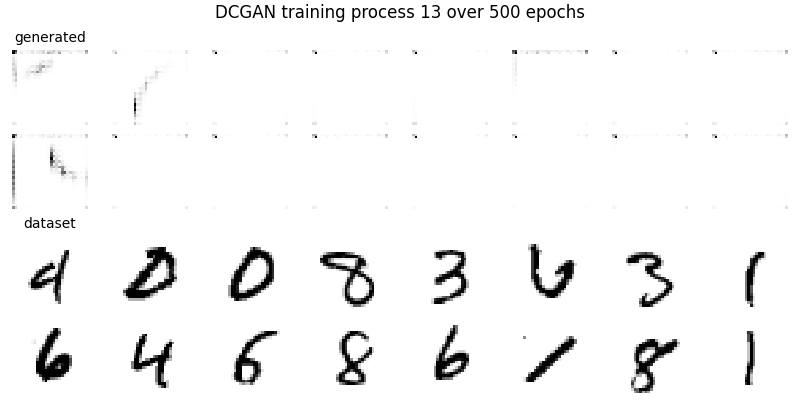 DCGAN training process 13 over 500 epochs
generated
dataset
4 0 0 8 3 6 3 1
6 4 6 8 6 / 8 1